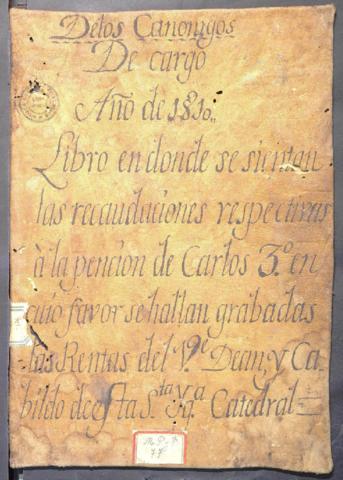 Delos Canonigos
De cargo
Año de 1810,,
Libro en donde se sientan
las recaudaciones respectivas
à la pencion de Carlos 3.º en
cuio favor se hallan grabadas
las Rentas del V.e Dean, y Ca
bildo de esta S.ta Yg.a Catedral
77